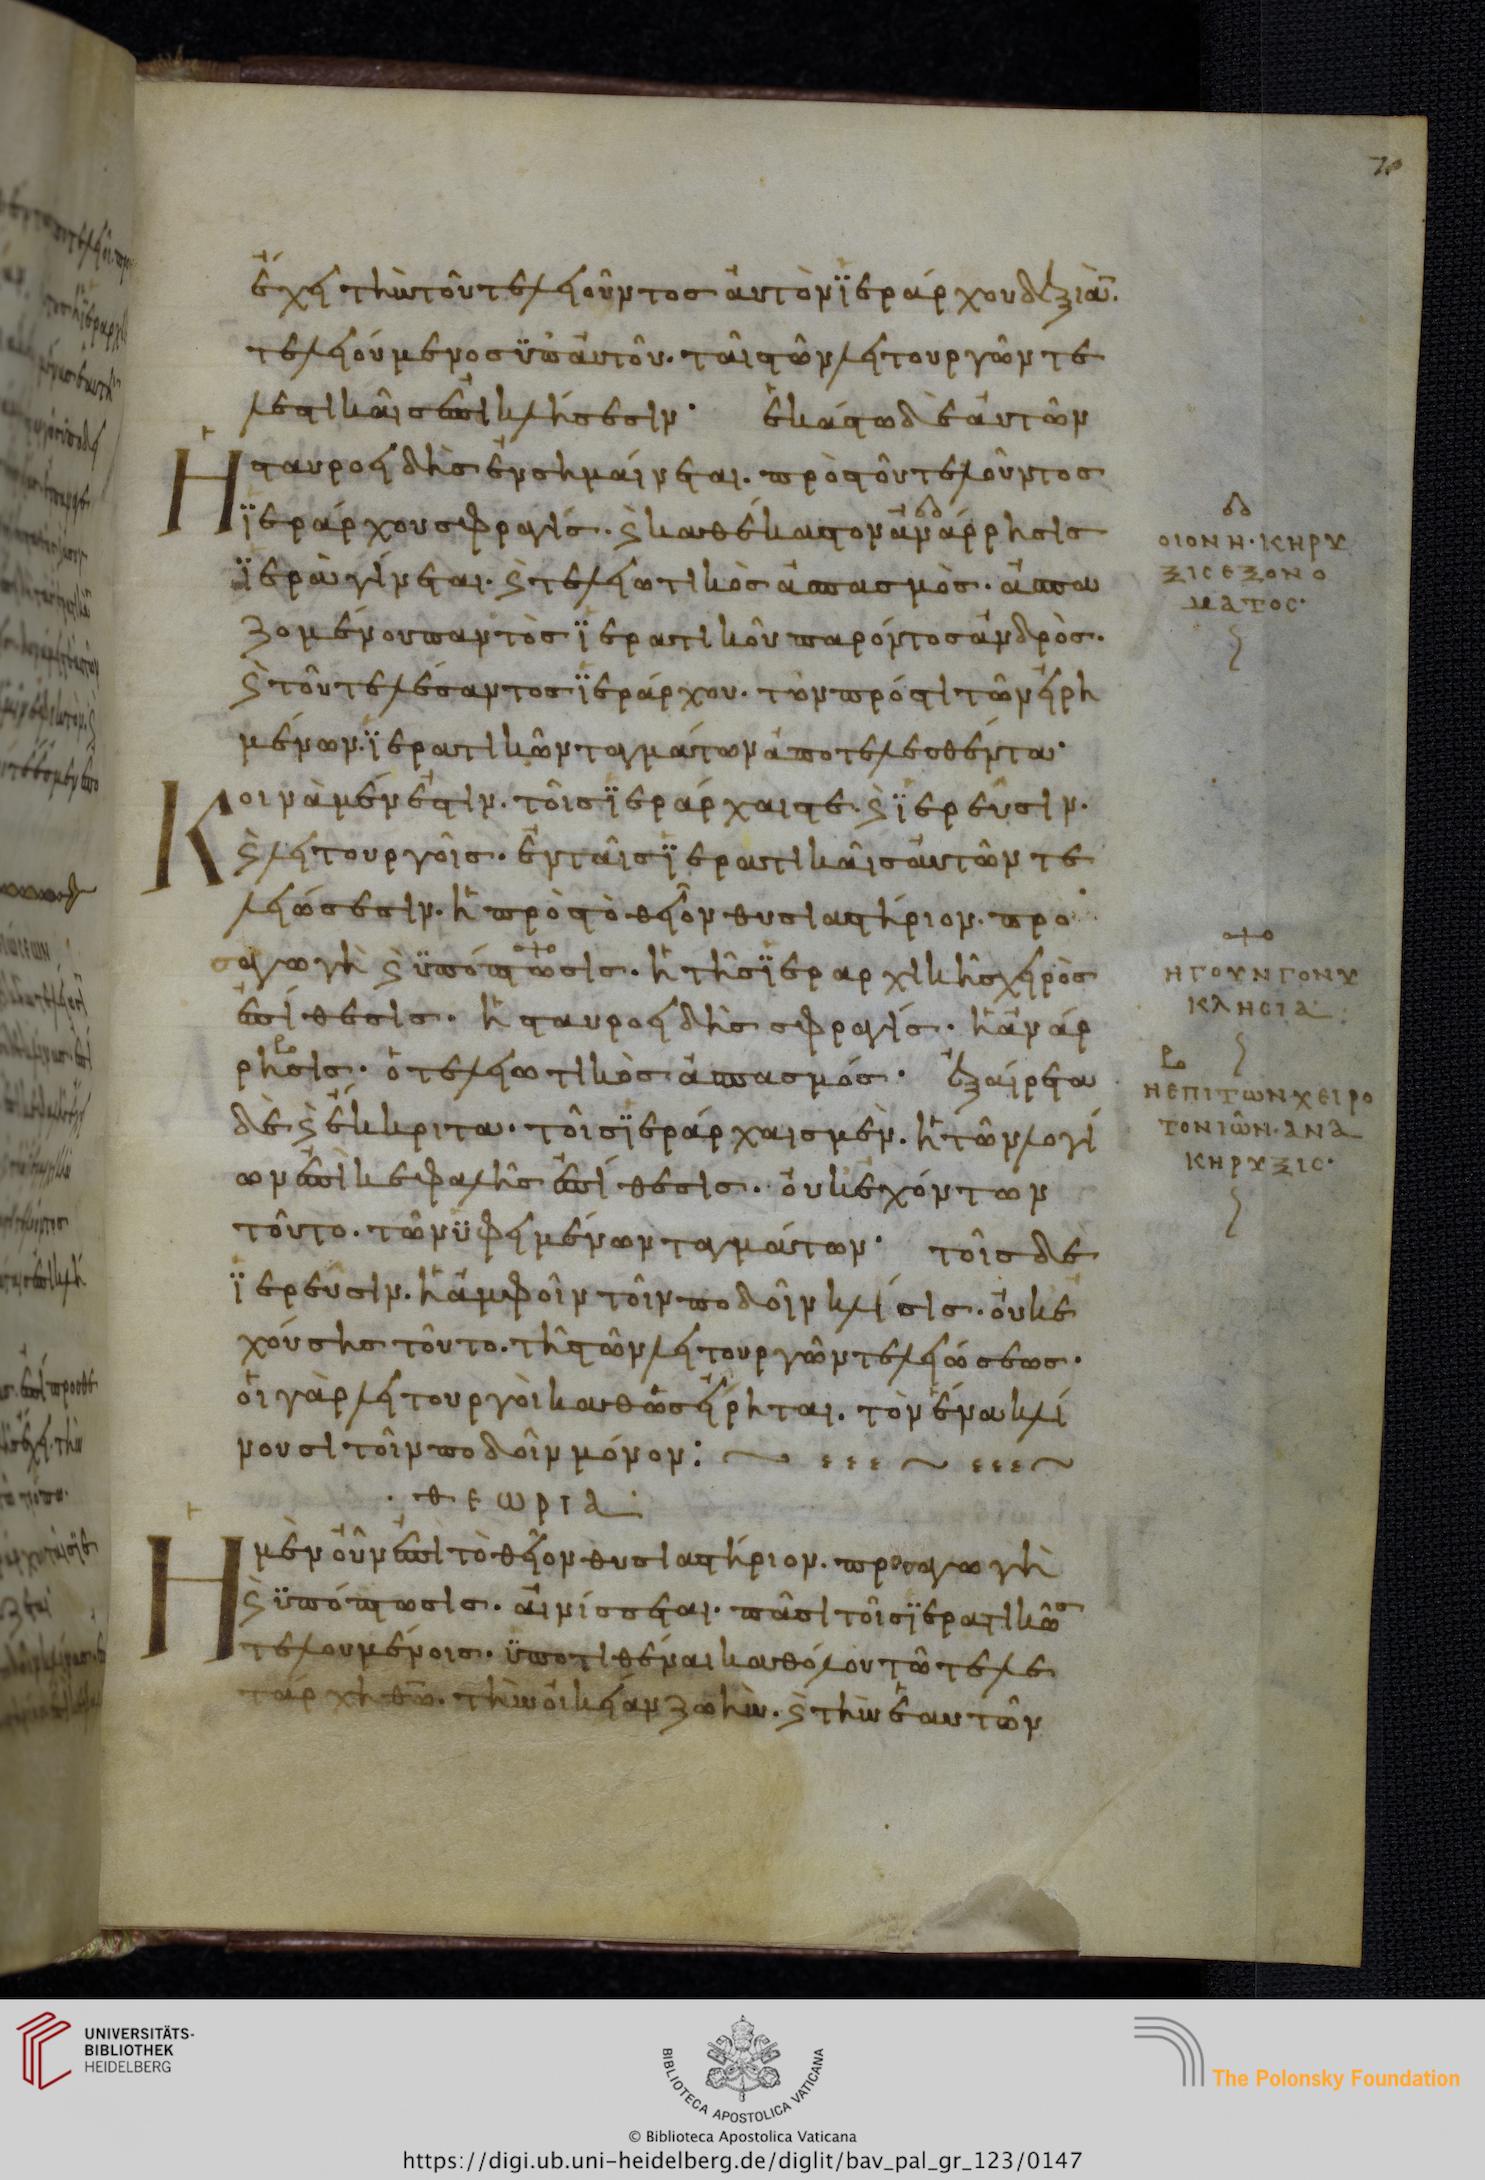 70
ἔχει τὴν τοῦ τελειοῦντος αὐτὸν ἱεράρχου δεξιὰν.
τελειούμενος ὑπ' αὐτοῦ. ταῖς τῶν λειτουργῶν τε
λεστικαῖς ἐπικλήσεσιν· ἑκάστω δὲ αὐτῶν
Ἡ σταυροειδὴς ἐνσημαίνεται. πρὸς τοῦ τελοῦντος
ἱεράρχου σφραγίς. καὶ καθέκαστον ἀνάρρησις
ἱερὰ γίνεται. καὶ τελειωτικὸς ἀσπασμὸς. ἀσπα
ζομένου παντὸς ἱερατικοῦ παρόντος ἀνδρὸς.
καὶ τοῦ τελέσαντος ἱεράρχου. τὸν πρός τι τῶν εἰρη
μένων. ἱερατικῶν ταγμάτων ἀποτελεσθέντα·
Κοινὰ μέν ἐστιν. τοῖς ἱεράρχαις τε. καὶ ἱερεῦσιν.
καὶ λειτουργοῖς. ἐν ταῖς ἱερατικαῖς αὐτῶν τε
λειώσεσιν. ἡ πρὸς τὸ θεῖον θυσιαστήριον. προ
σαγωγὴ καὶ ὑπόπτωσις. ἡ τῆς ἱεραρχικῆς χειρὸς
ἐπίθεσις. ἡ σταυροειδὴς σφραγίς. ἡ ἀνάρ
ρησις. ὁ τελειωτικὸς ἀσπασμός. ἐξαίρετα
δὲ καὶ ἔκκριτα. τοῖς ἱεράρχαις μὲν. ἡ τῶν λογί
ων ἐπὶ κεφαλῆς ἐπίθεσις. οὐκ ἐχόντων
τοῦτο. τῶν ὑφειμένων ταγμάτων· τοῖς δε
ἱερεῦσιν. ἡ ἀμφοῖν τοῖν ποδοῖν κλίσις. οὐκ ἐ
χούσης τοῦτο. τῆς τῶν λειτουργῶν τελειώσεως.
οἱ γὰρ λειτουργοὶ καθὼς εἴρηται. τὸν ἕνα κλί
νουσι τοῖν ποδοῖν μόνον:
θεωρία
Ἡ μὲν οὖν ἐπὶ τὸ θεῖον θυσιαστήριον. προσαγωγὴ
καὶ ὑπόπτωσις. αἰνίσσεται. πᾶσι τοῖς ἱερατικῶς
τελουμένοις. ὑποτιθέναι καθόλου τῶ τελε
τάρχη θῶ. τὴν οἰκείαν ζωὴν. καὶ τὴν ἑαυτῶν
ΟΙΟΝ Η· ΚΗΡΥ
ΞΙΣ ΕΞ ΟΝΟ
ΜΑΤΟΣ·
ΗΓΟΥΝ ΓΟΝΥ
ΚΛΗΣΙΑ
Η ΕΠΙ ΤΩΝ ΧΕΙΡΟ
ΤΟΝΙΩΝ· ΑΝΑ
ΚΗΡΥΞΙΣ·
UNIVERSITÄTS-
BIBLIOTHEK
HEIDELBERG
BIBLIOTECA APOSTOLICA VATICANA
© Biblioteca Apostolica Vaticana
The Polonsky Foundation
https://digi.ub.uni-heidelberg.de/diglit/bav_pal_gr_123/0147